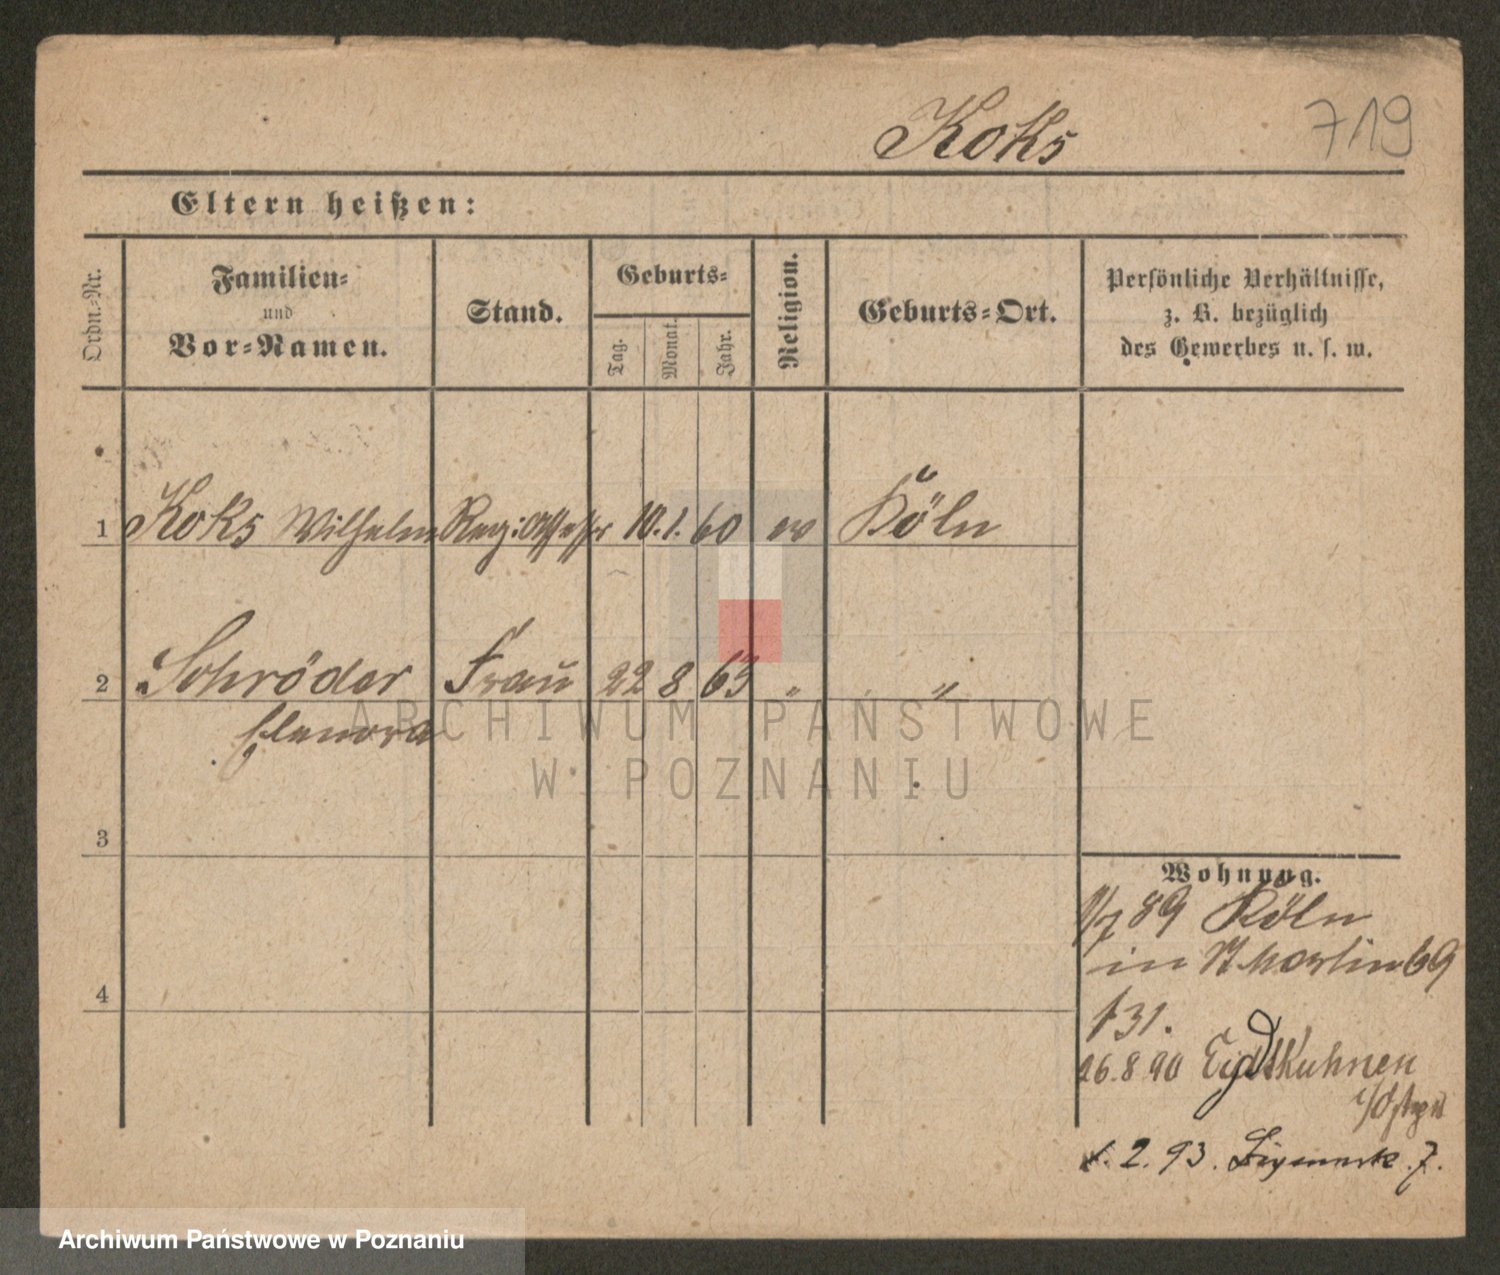 Koks 719
Eltern heißen:
Ordn.-Nr.
Familien-
und
Vor-Namen.
Stand.
Geburts-
Tag.
Monat.
Jahr.
Religion.
Geburts-Ort.
Persönliche Verhältnisse,
z. B. bezüglich
des Gewerbes u. s. w.
1 Koks Wilhelm Reg: Assessor 10. 1. 60 ev Köln
2 Schröder Frau 22 8 63 " "
Elenora
3
4
Wohnung.
1/7 89 Köln
in St Martin 69
131.
26. 8 90 Eydtkuhnen
i/Ostpr
1. 2. 93. 7.
ARCHIWUM PAŃSTWOWE
W POZNANIU
Archiwum Państwowe w Poznaniu